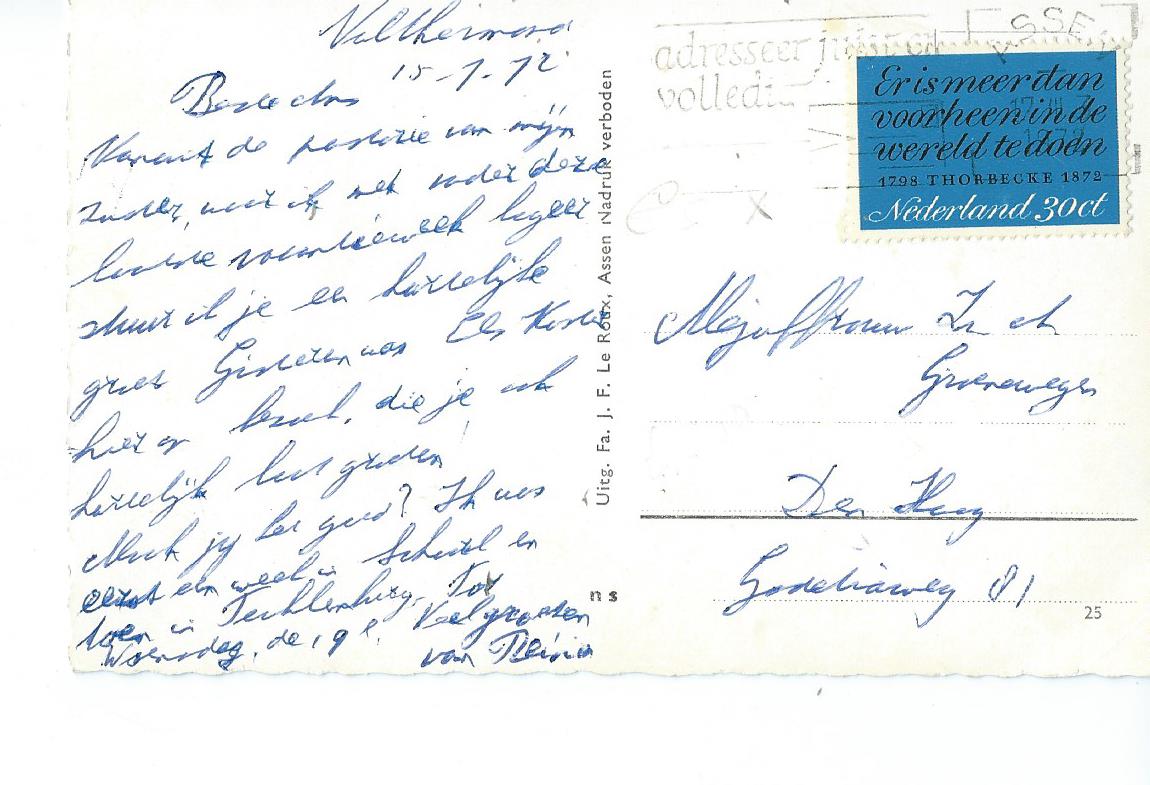 Valthermond
15-7-72
Beste
Vanuit de pastorie van mijn
zuster, waar ik met onder deze
laatste vacantieweek logeer
stuur ik je een hartelijke
groet. Gisteren was Els Koster
hier op bezoek, die je ook
hartelijk laat groeten.
Maak jij het goed? Ik was
eerst een week in Schoorl en
toen in Tecklenburg. Tot
Woensdag, de 19e. Veel groeten
van
Uitg. Fa. J. F. Le Roux, Assen Nadruk verboden
ns
adresseer juist en
volledig
ASSEN
Er is meer dan
voorheen in de
wereld te doen
1798 THORBECKE 1872
Nederland 30ct
X
Mejuffrouw
Groeneweger
Den Haag
81
25